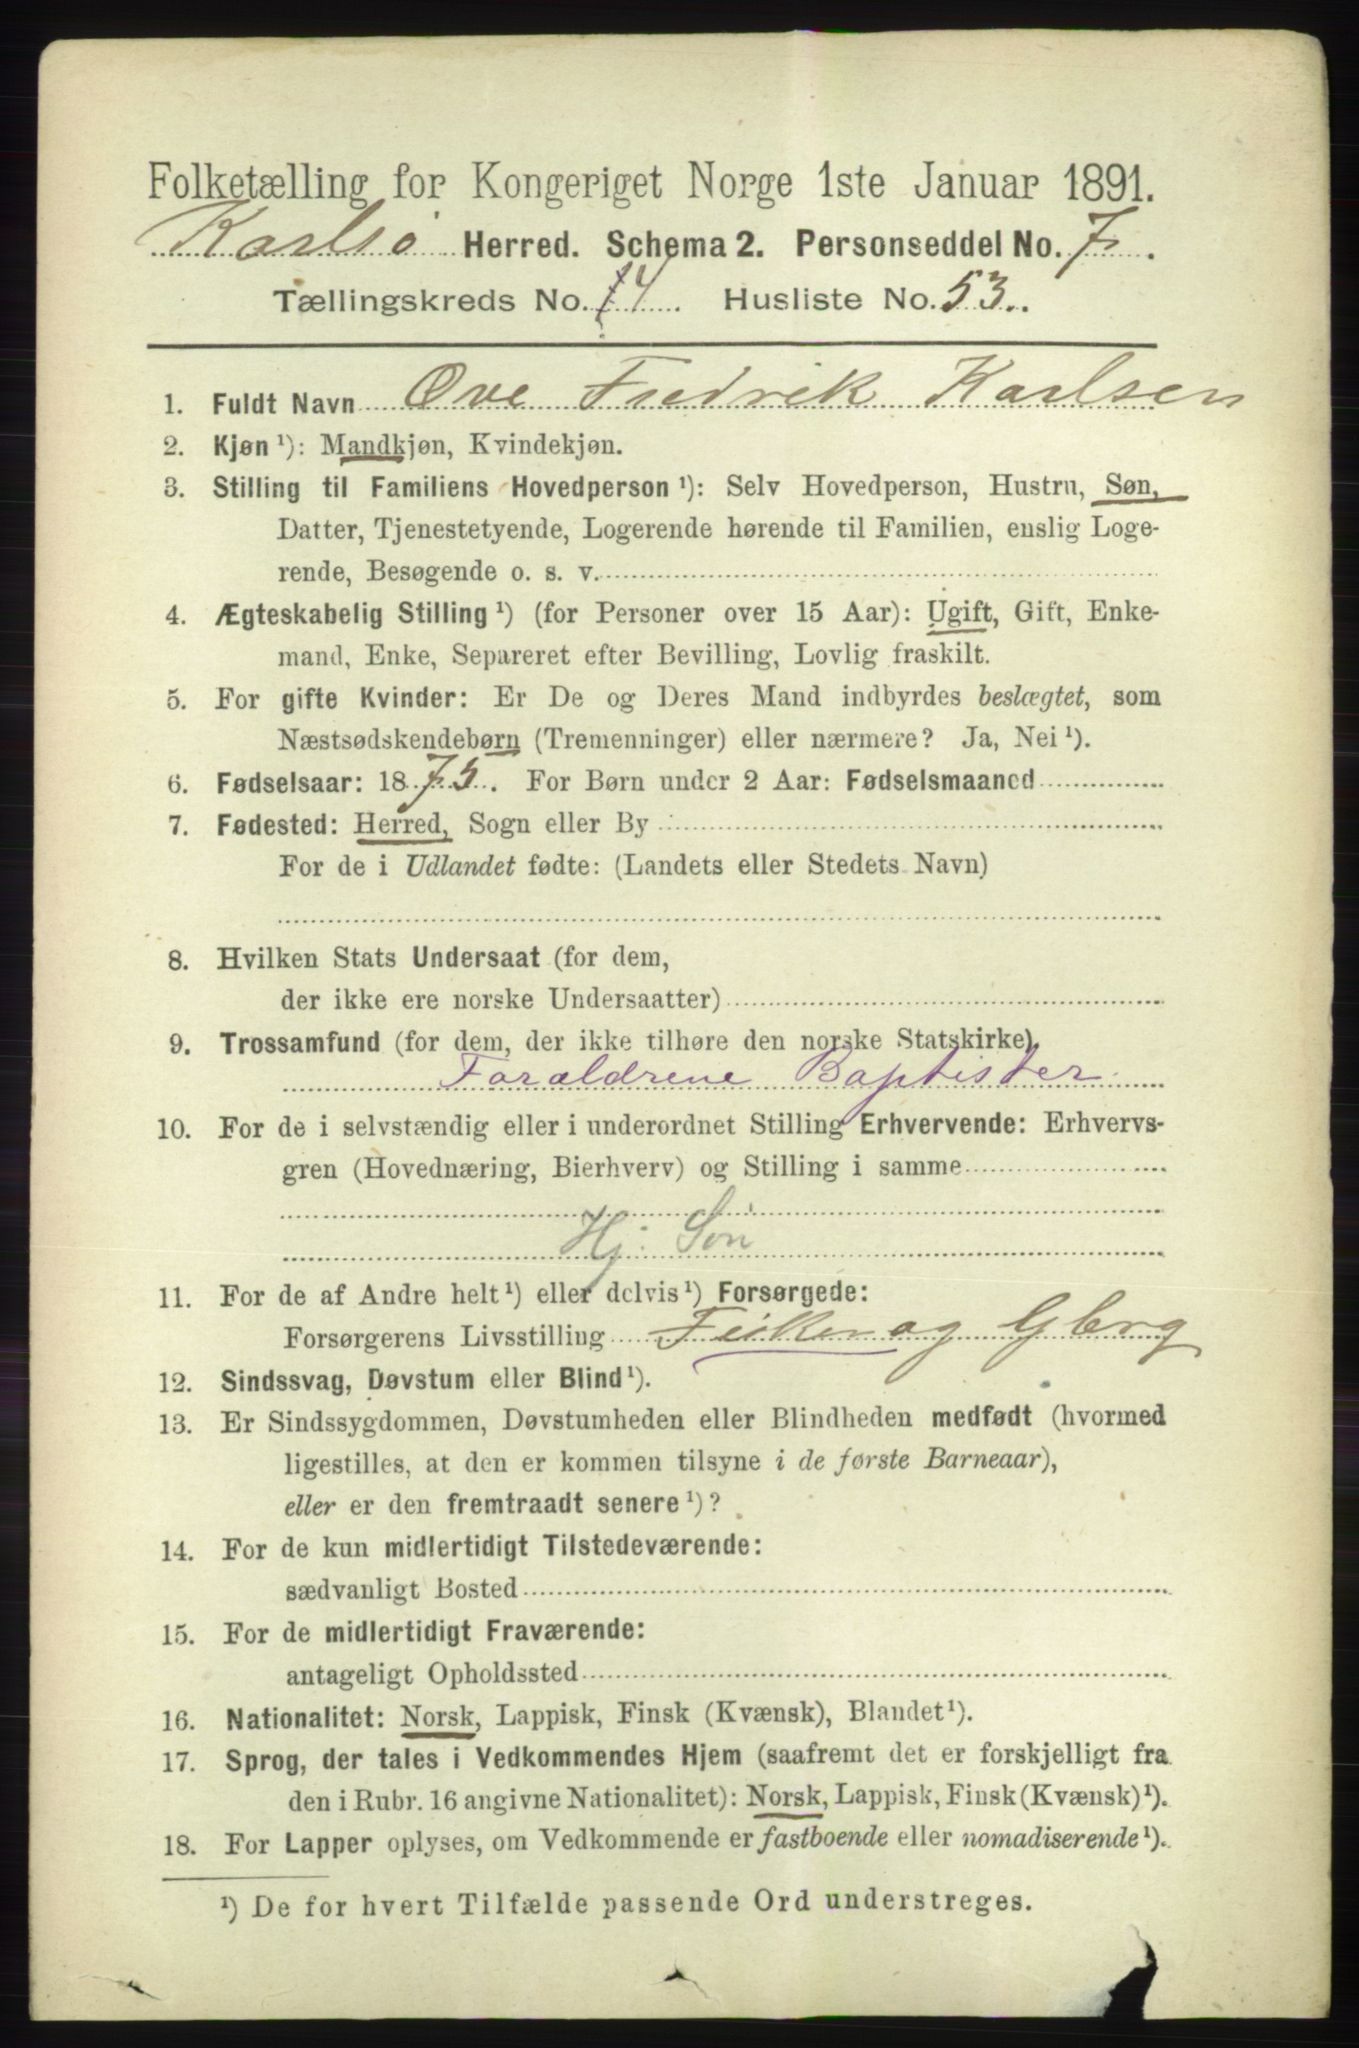 Folketælling for Kongeriget Norge 1ste Januar 1891.
Karlsø Herred. Schema 2. Personseddel No. 7.
Tællingskreds No. 4. Husliste No. 53.
1. Fuldt Navn Ove Fredrik Karlsen
2. Kjøn ¹): Mandkjøn, Kvindekjøn.
3. Stilling til Familiens Hovedperson ¹): Selv Hovedperson, Hustru, Søn,
Datter, Tjenestetyende, Logerende hørende til Familien, enslig Loge-
rende, Besøgende o. s. v.
4. Ægteskabelig Stilling ¹) (for Personer over 15 Aar): Ugift, Gift, Enke-
mand, Enke, Separeret efter Bevilling, Lovlig fraskilt.
5. For gifte Kvinder: Er De og Deres Mand indbyrdes beslægtet, som
Næstsødskendebørn (Tremenninger) eller nærmere? Ja, Nei ¹).
6. Fødselsaar: 1875. For Børn under 2 Aar: Fødselsmaaned
7. Fødested: Herred, Sogn eller By
For de i Udlandet fødte: (Landets eller Stedets Navn)
8. Hvilken Stats Undersaat (for dem,
der ikke ere norske Undersaatter)
9. Trossamfund (for dem, der ikke tilhøre den norske Statskirke)
Forældrene Baptister
10. For de i selvstændig eller i underordnet Stilling Erhvervende: Erhvervs-
gren (Hovednæring, Bierhverv) og Stilling i samme
Hj. Søn
11. For de af Andre helt ¹) eller delvis ¹) Forsørgede:
Forsørgerens Livsstilling Fisker og Gbrg
12. Sindssvag, Døvstum eller Blind ¹).
13. Er Sindssygdommen, Døvstumheden eller Blindheden medfødt (hvormed
ligestilles, at den er kommen tilsyne i de første Barneaar),
eller er den fremtraadt senere ¹)?
14. For de kun midlertidigt Tilstedeværende:
sædvanligt Bosted
15. For de midlertidigt Fraværende:
antageligt Opholdssted
16. Nationalitet: Norsk, Lappisk, Finsk (Kvænsk), Blandet ¹).
17. Sprog, der tales i Vedkommendes Hjem (saafremt det er forskjelligt fra
den i Rubr. 16 angivne Nationalitet): Norsk, Lappisk, Finsk (Kvænsk) ¹).
18. For Lapper oplyses, om Vedkommende er fastboende eller nomadiserende ¹).
¹) De for hvert Tilfælde passende Ord understreges.